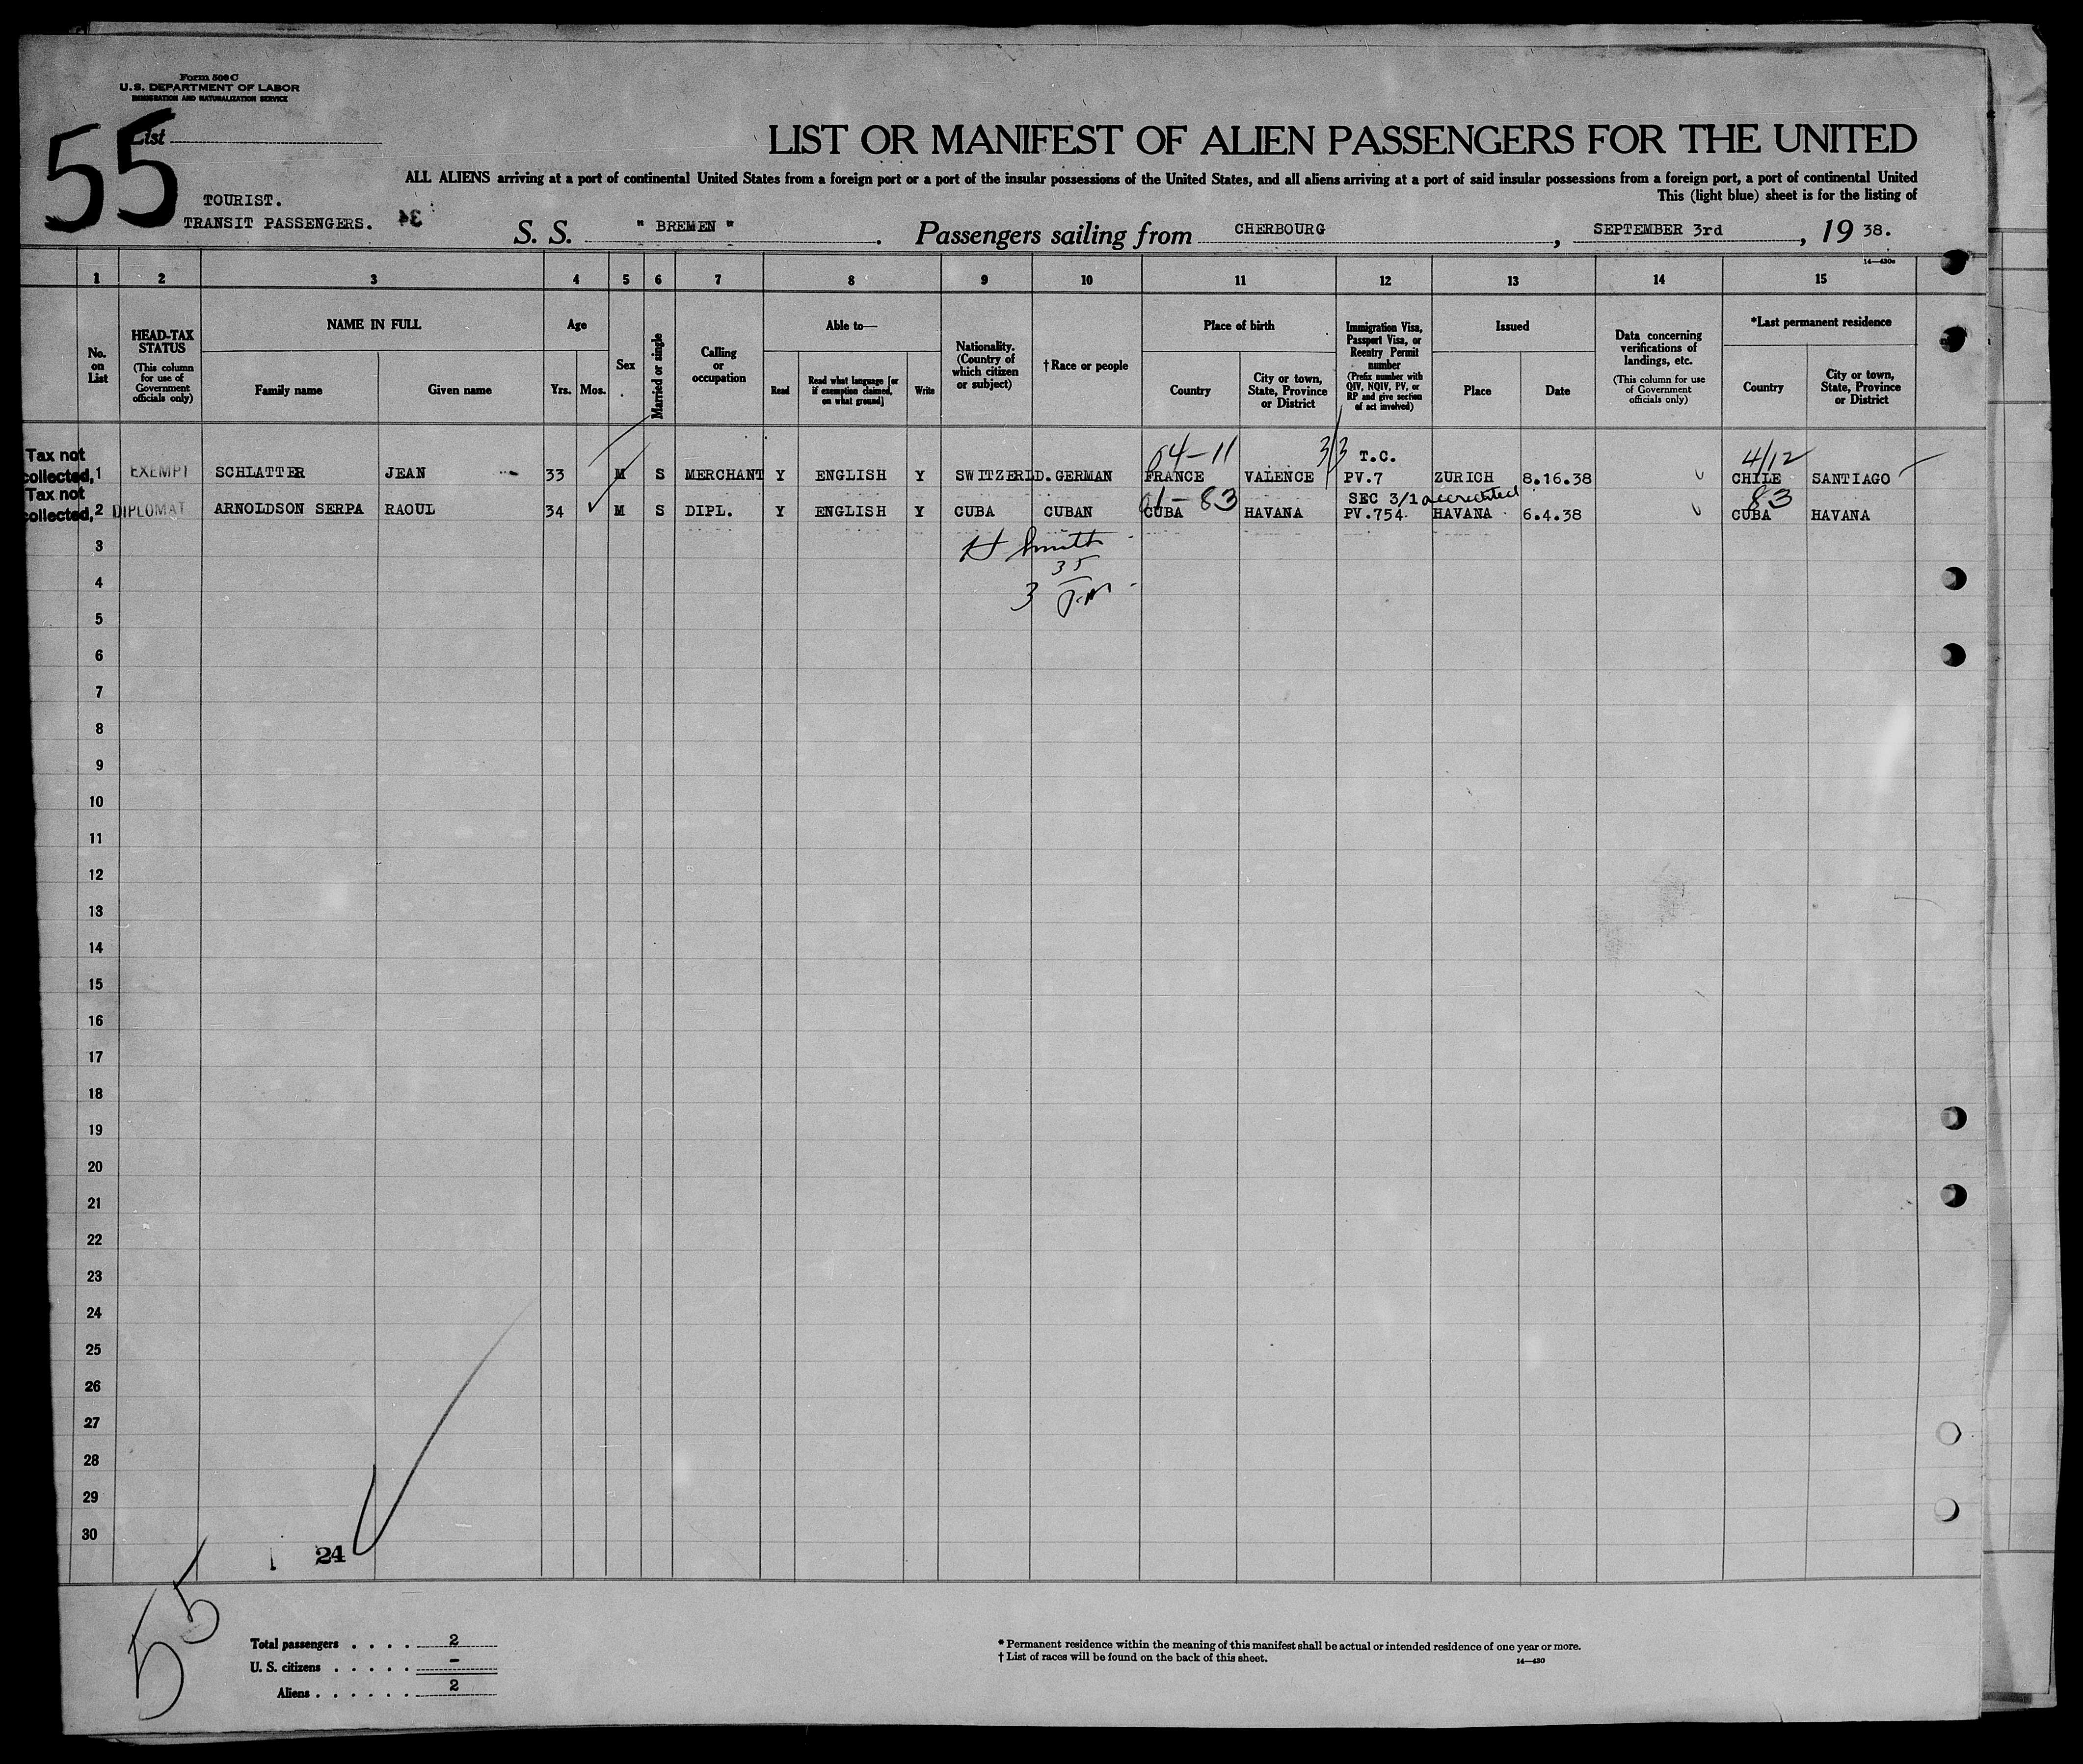 Form 500 C
U.S. DEPARTMENT OF LABOR
IMMIGRATION AND NATURALIZATION SERVICE
55
List
LIST OR MANIFEST OF ALIEN PASSENGERS FOR THE UNITED
ALL ALIENS arriving at a port of continental United States from a foreign port or a port of the insular possessions of the United States, and all aliens arriving at a port of said insular possessions from a foreign port, a port of continental United
This (light blue) sheet is for the listing of
TOURIST.
TRANSIT PASSENGERS. 34
S. S. " BREMEN " . Passengers sailing from CHERBOURG , SEPTEMBER 3rd , 19 38.
14—430c
1 2 3 4 5 6 7 8 9 10 11 12 13 14 15
No. on List
HEAD-TAX STATUS (This column for use of Government officials only)
NAME IN FULL Family name Given name
Age Yrs. Mos.
Sex
Married or single
Calling or occupation
Able to— Read Read what language [or if exemption claimed, on what ground] Write
Nationality. (Country of which citizen or subject)
† Race or people
Place of birth Country City or town, State, Province or District
Immigration Visa, Passport Visa, or Reentry Permit number (Prefix number with QIV, NQIV, PV, or RP and give section of act involved)
Issued Place Date
Data concerning verifications of landings, etc. (This column for use of Government officials only)
*Last permanent residence Country City or town, State, Province or District
04-11 3/3 T.C. 4/12
Tax not collected, 1 EXEMPT SCHLATTER JEAN 33 M S MERCHANT Y ENGLISH Y SWITZERLD. GERMAN FRANCE VALENCE PV.7 ZURICH 8.16.38 CHILE SANTIAGO
61-83 SEC 3/1 accredited 83
Tax not collected, 2 DIPLOMAT ARNOLDSON SERPA RAOUL 34 M S DIPL. Y ENGLISH Y CUBA CUBAN CUBA HAVANA PV.754 HAVANA 6.4.38 CUBA HAVANA
3 H Smith
35
4 3
5
6
7
8
9
10
11
12
13
14
15
16
17
18
19
20
21
22
23
24
25
26
27
28
29
30
24
55
Total passengers . . . . 2
U. S. citizens . . . . . -
Aliens . . . . . . 2
* Permanent residence within the meaning of this manifest shall be actual or intended residence of one year or more.
† List of races will be found on the back of this sheet.
14—430